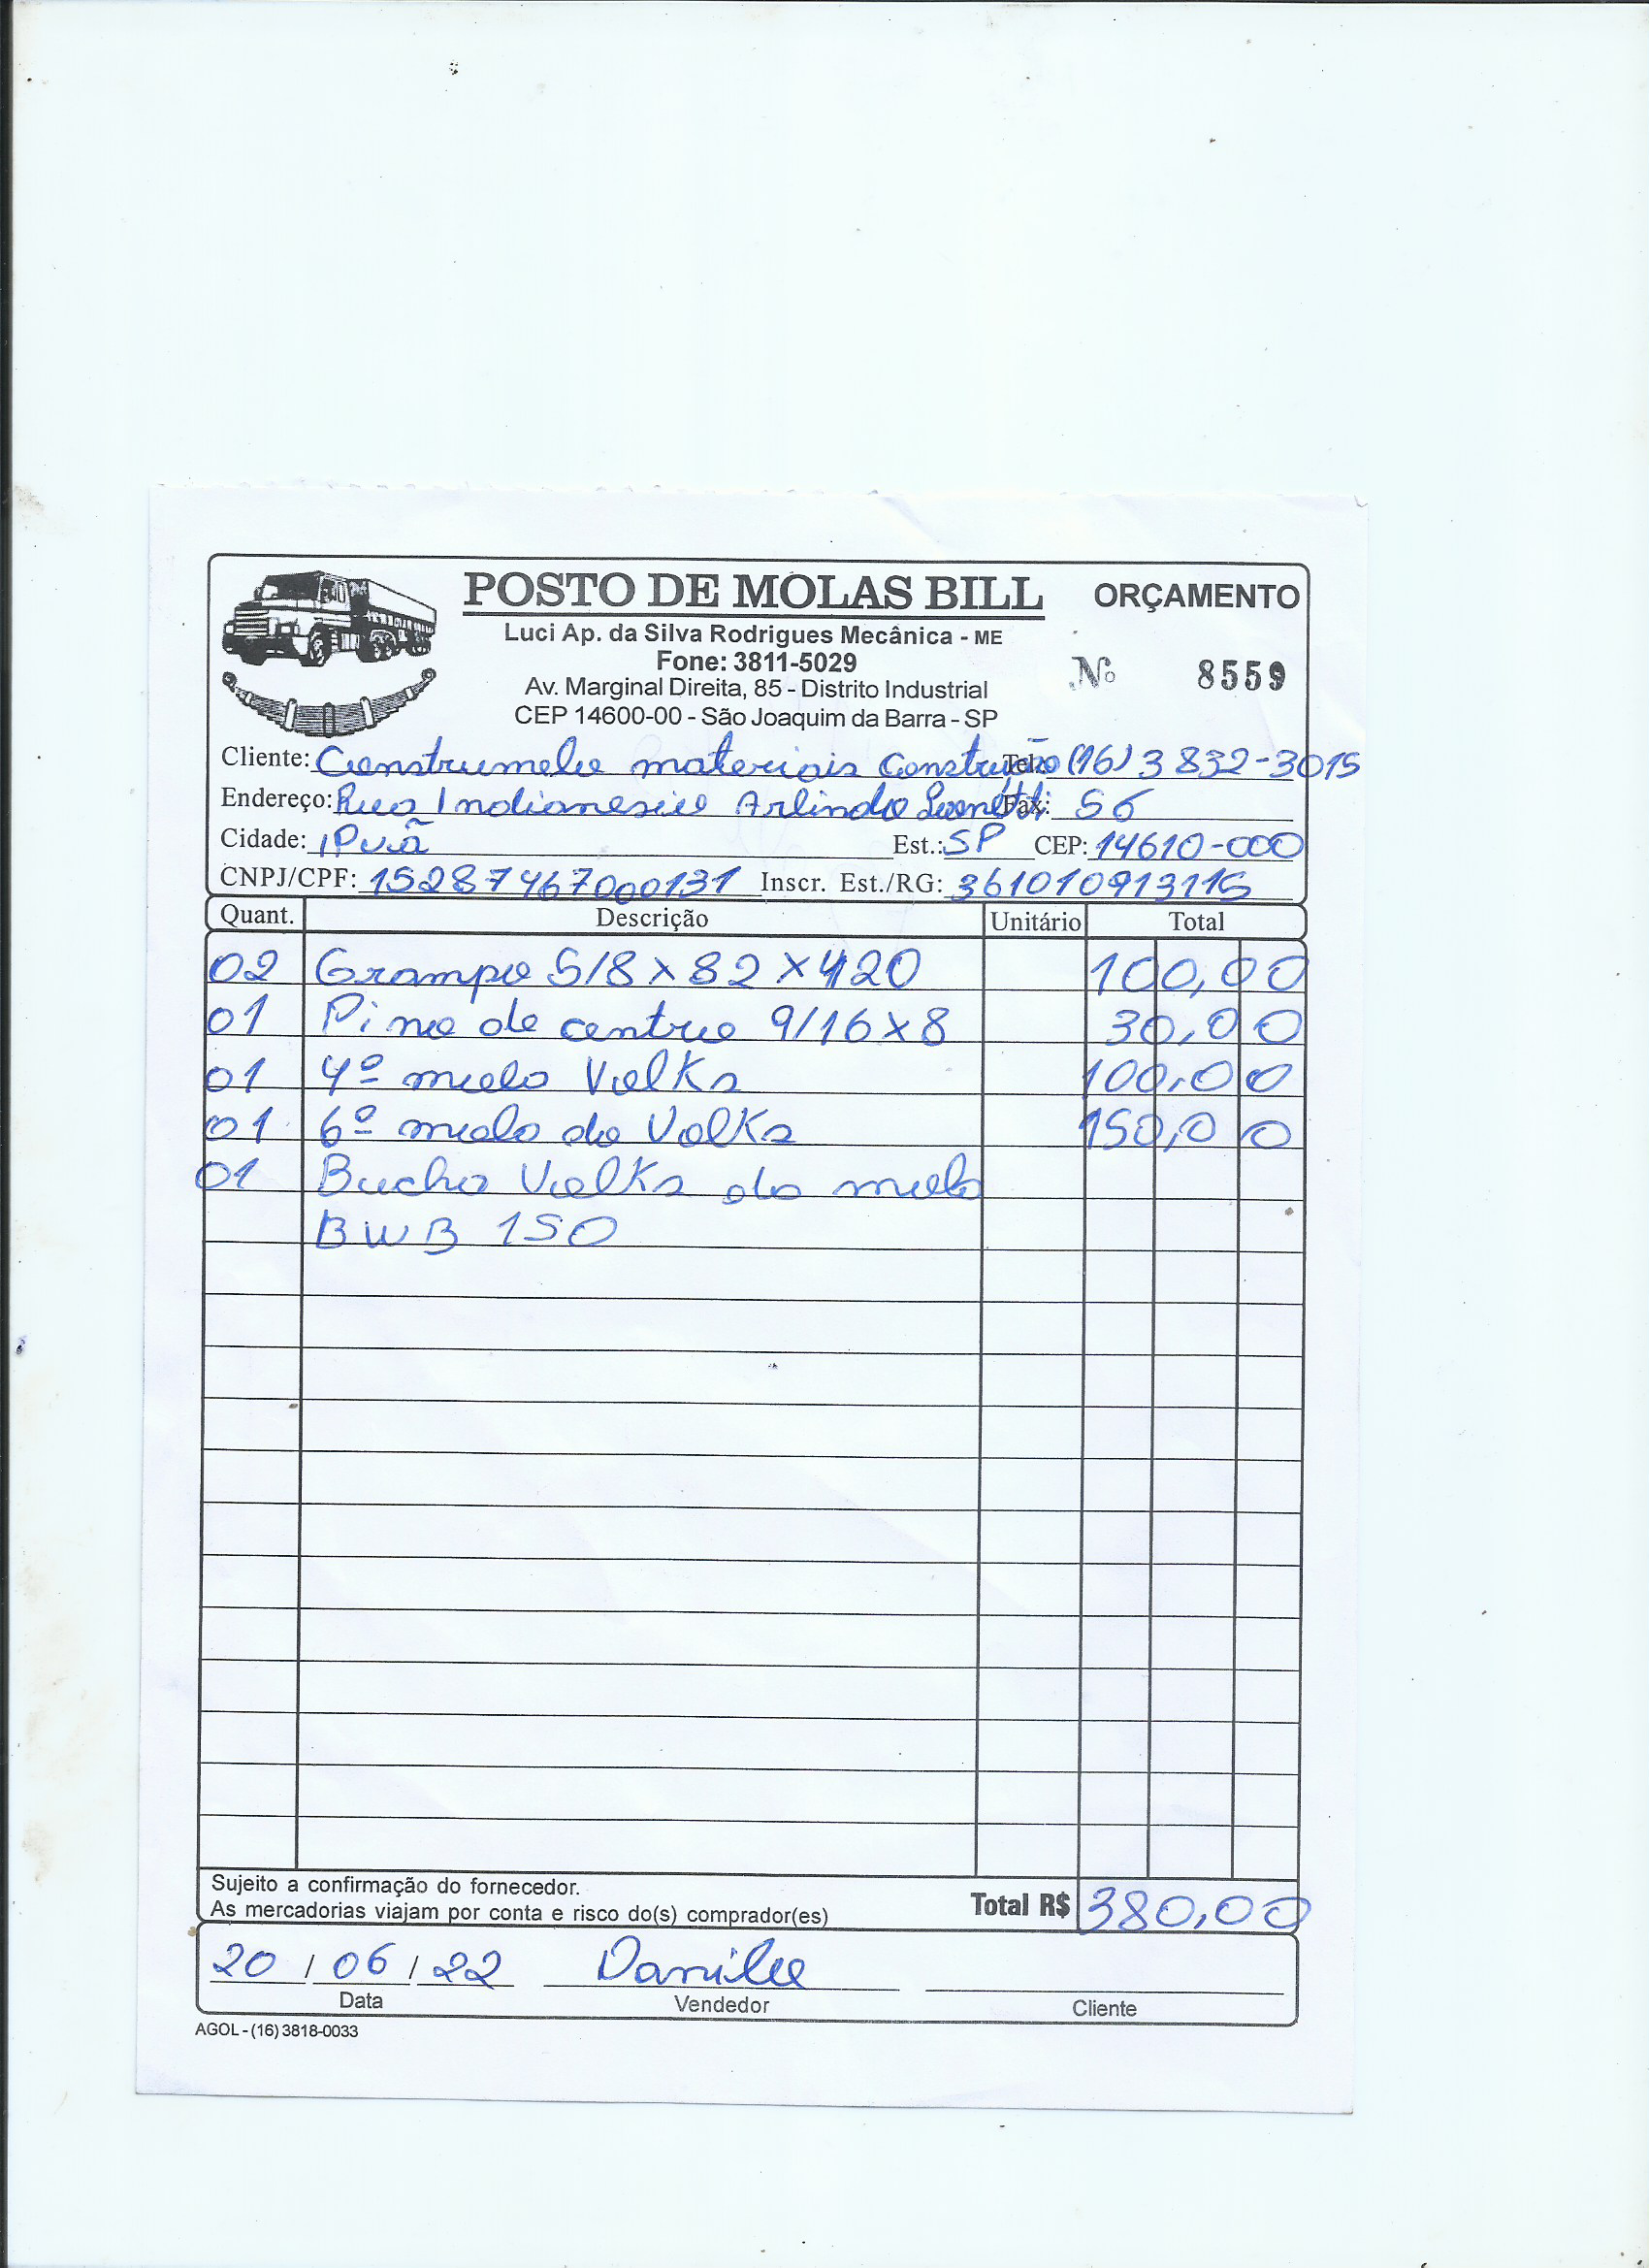 POSTO DE MOLAS BILL
ORÇAMENTO
Luci Ap. da Silva Rodrigues Mecânica - ME
Fone: 3811-5029
Nº 8559
Av. Marginal Direita, 85 - Distrito Industrial
CEP 14600-00 - São Joaquim da Barra - SP
Cliente: Construmelo materiais Construção Tel.: (16) 3832-3015
Endereço: Rua Arlindo Fax: 56
Cidade: IPuã Est.: SP CEP: 14610-000
CNPJ/CPF: 15287467000131 Inscr. Est./RG: 361010913115
Quant. Descrição Unitário Total
02 Grampo 5/8 x 82 x 420 100,00
01 Pino de centro 9/16 x 8 30,00
01 4º mola Volks 100,00
01 6º mola do Volks 150,00
01 Bucha Volks da mola
BWB 150
Sujeito a confirmação do fornecedor.
As mercadorias viajam por conta e risco do(s) comprador(es)
Total R$ 380,00
20 / 06 / 22 Danilo
Data Vendedor Cliente
AGOL - (16) 3818-0033